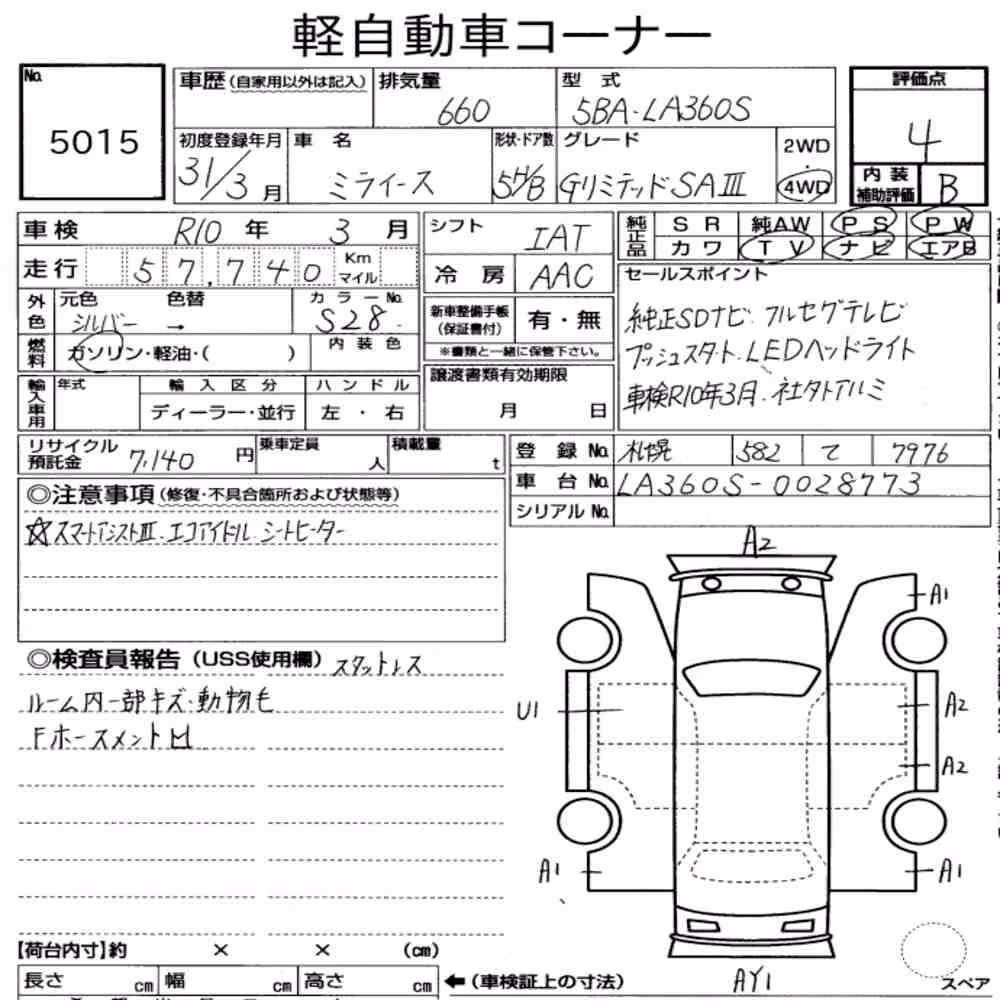 軽自動車コーナー
No. 5015
車歴 (自家用以外は記入)
排気量 660
型式 5BA-LA360S
評価点 4
初度登録年月 31/3月
車名 ミライース
形状・ドア数 5H/B
グレード GリミテッドSAⅢ
2WD・4WD
内装補助評価 B
車検 R10年 3月
シフト IAT
純正品 SR 純AW PS PW
カワ TV ナビ エアB
走行 57,740 Km マイル
冷房 AAC
セールスポイント
純正SDナビ.フルセグテレビ
プッシュスタート.LEDヘッドライト
車検R10年3月.社外アルミ
外色 元色 シルバー → 色替
カラーNo. S28
新車整備手帳(保証書付) 有・無
※書類と一緒に保管下さい。
燃料 ガソリン・軽油・( )
内装色
輸入車用 年式
輸入区分 ディーラー・並行
ハンドル 左・右
譲渡書類有効期限
月 日
リサイクル預託金 7,140円
乗車定員 人
積載量 t
登録No. 札幌 582 て 7976
車台No. LA360S-0028773
シリアルNo.
◎注意事項(修復・不具合箇所および状態等)
☆スマートアシストⅢ.エコアイドル.シートヒーター
◎検査員報告(USS使用欄) スタットレス
ルーム内一部キズ・動物毛
Fホースメント凹
A2
A1
U1
A2
A2
A1
A1
AY1
スペア
【荷台内寸】約 × × (cm)
長さ cm 幅 cm 高さ cm
←(車検証上の寸法)